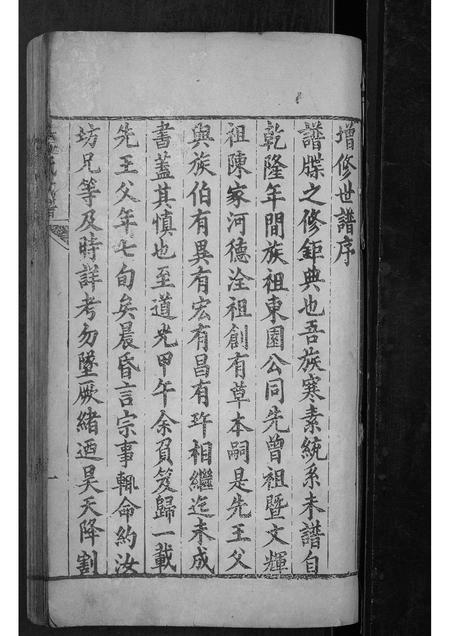 增修世譜序
譜牒之修鉅典也吾族寒素統系未譜自
乾隆年間族祖東園公同先曾祖暨文輝
祖陳家河德洤祖創有草本嗣是先王父
與族伯有異有宏有昌有玝相繼迄未成
書蓋其慎也至道光甲午余負笈歸一載
先王父年七旬矣晨昏言宗事輒命約汝
坊兄等及時詳考勿墜厥緒迺昊天降割